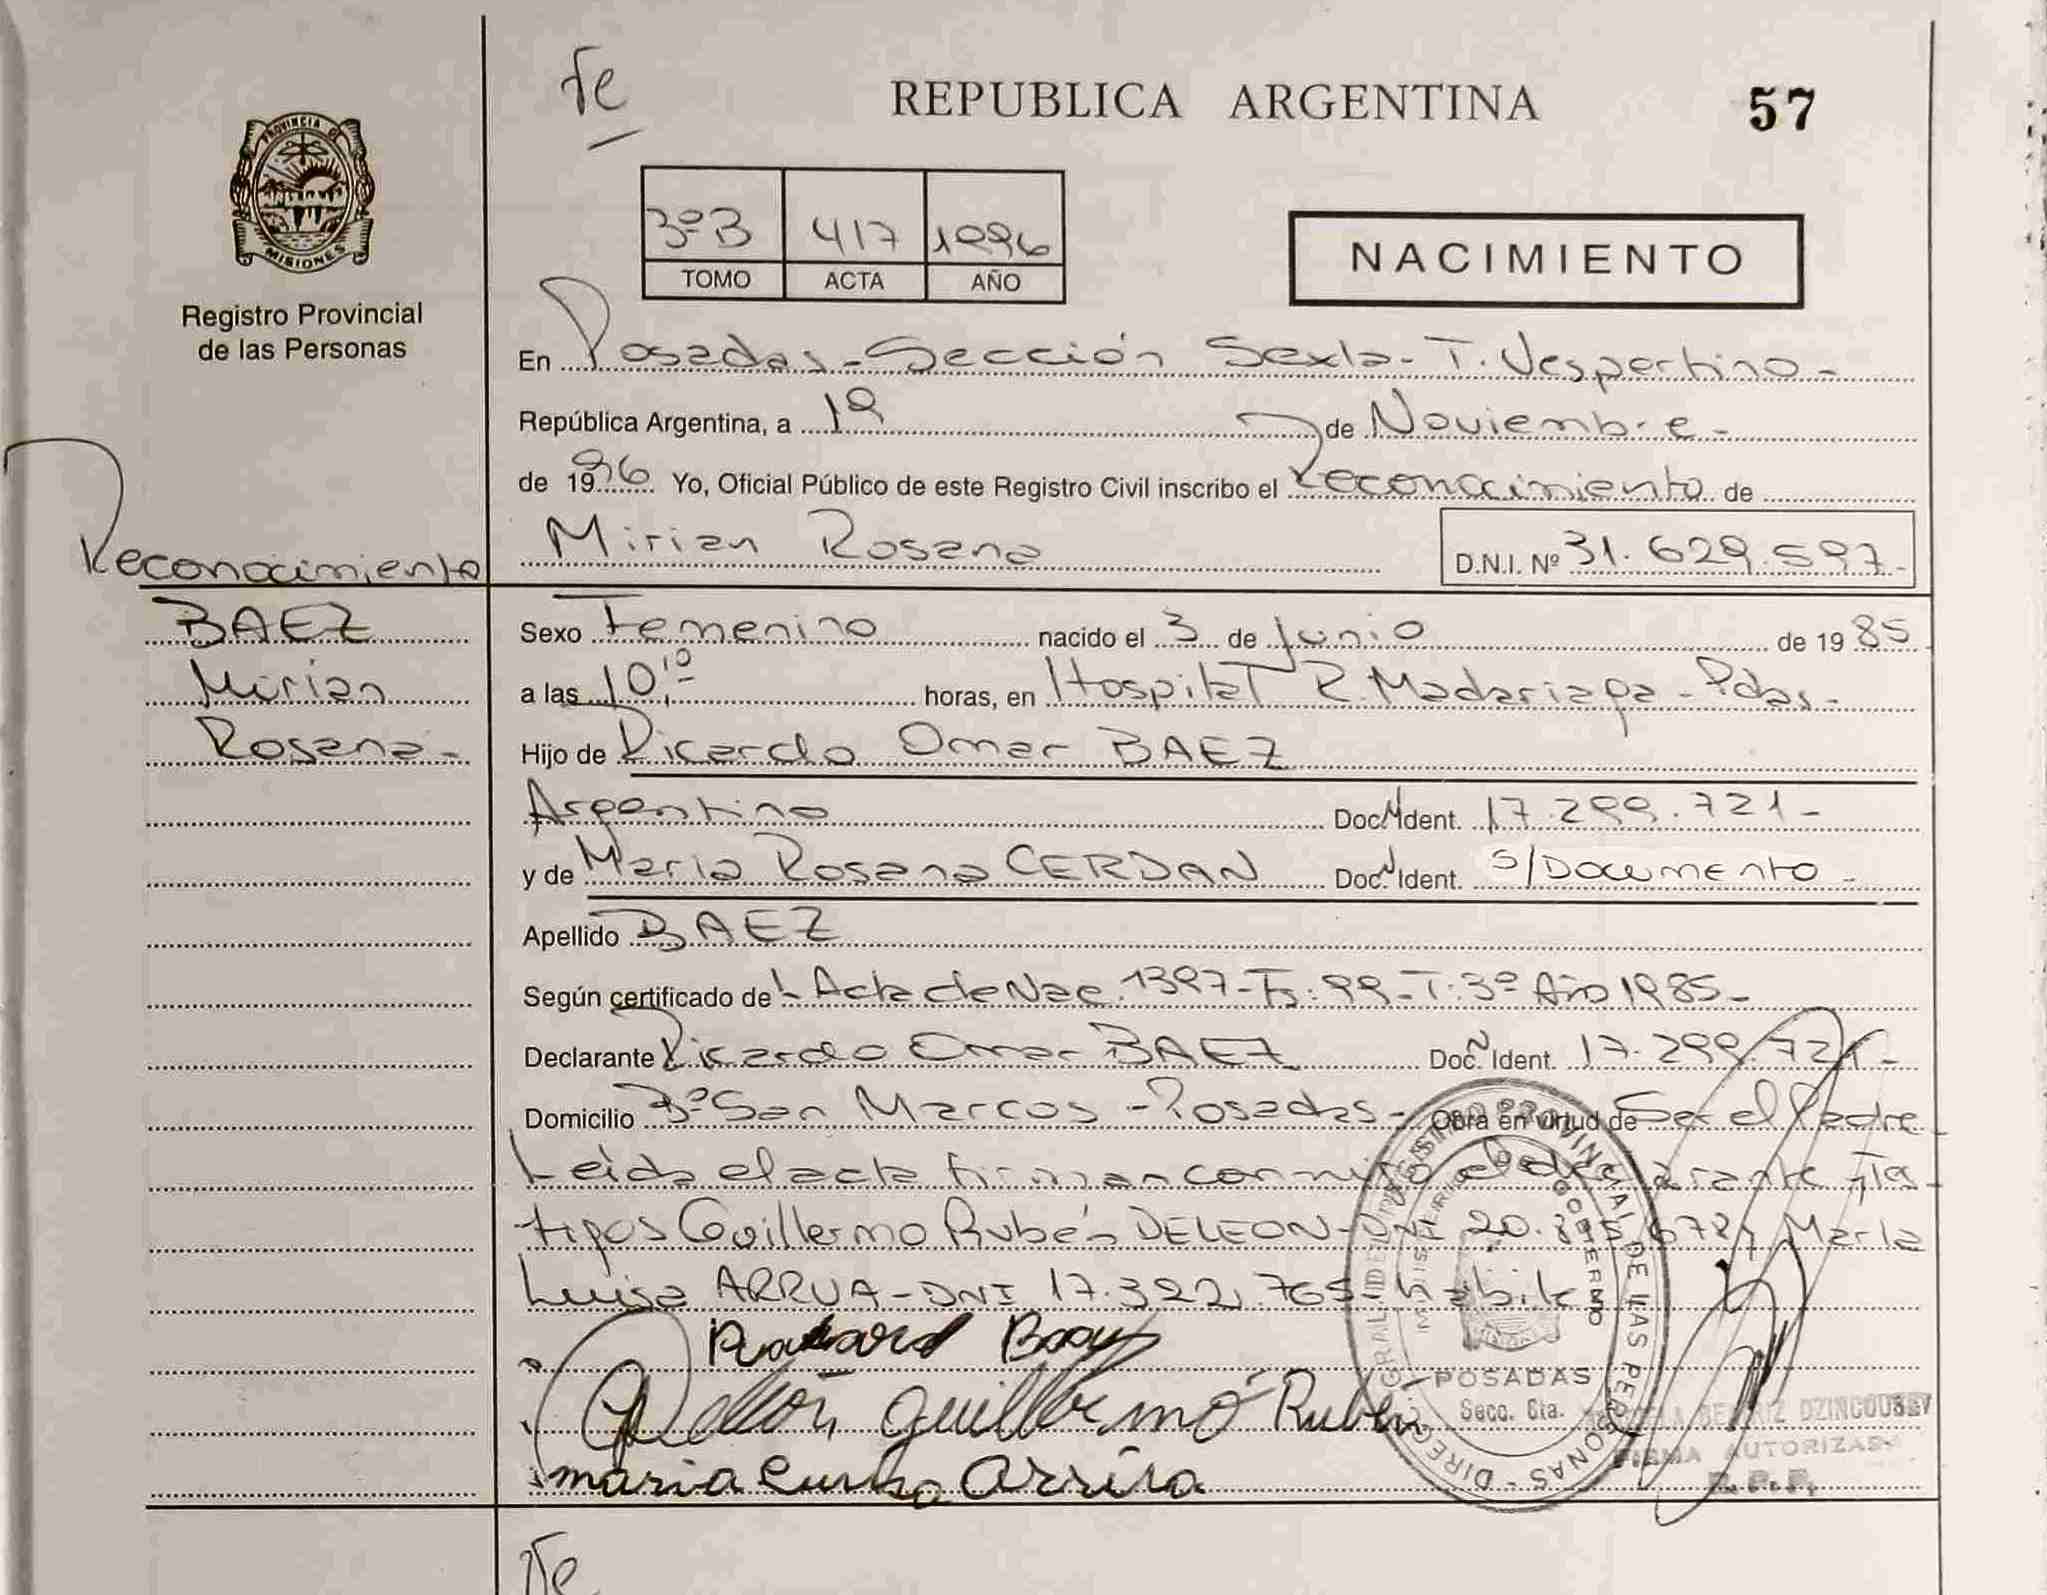 Fe
REPUBLICA ARGENTINA
57
PROVINCIA DE
MISIONES
Registro Provincial
de las Personas
3º B 417 1996
TOMO ACTA AÑO
NACIMIENTO
En Posadas - Sección Sexta - T. Vespertino -
República Argentina, a 19 de Noviembre -
de 1996 Yo, Oficial Público de este Registro Civil inscribo el Reconocimiento de
Mirian Rosana D.N.I. Nº 31.629.597.-
Reconocimiento
BAEZ
Mirian
Rosana -
Sexo Femenino nacido el 3 de Junio de 1985
a las 10,10 horas, en Hospital R. Madariaga - Pdas. -
Hijo de Ricardo Omar BAEZ
Argentino Doc. N Ident. 17.299.721 -
y de Maria Rosana CERDAN Doc. N Ident. S/Documento -
Apellido BAEZ
Según certificado de L Acta de Nac. 1397 - Fº: 99 - T: 3º Año 1985 -
Declarante Ricardo Omar BAEZ Doc. N Ident. 17.299.721 -
Domicilio Bº San Marcos - Posadas - Obra en virtud de Ser el Padre
Leida el acta firman conmigo el declarante y Tes
tigos Guillermo Rubén DELEON - DNI 20. 678 y Maria
Luisa ARRUA - DNI 17.322.765 - habile
Deleón Guillermo Rubén
maria Luisa Arrua
DIRECC GRAL DE REGISTRO PROVINCIAL DE LAS PERSONAS
MINISTERIO DE GOBIERNO
POSADAS
Secc. 6ta.
BEATRIZ DZINCOUSKY
FIRMA AUTORIZADA
R.P.P.
Fe